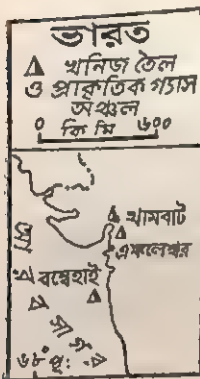 ভারত
খনিজ তৈল
ও প্রাকৃতিক গ্যাস
অঞ্চল
০ কি মি ৬০০
খামবাট
এঙ্কলেশ্বর
বম্বেহাই
আ র ব সা গ র
৬৮° পূঃ